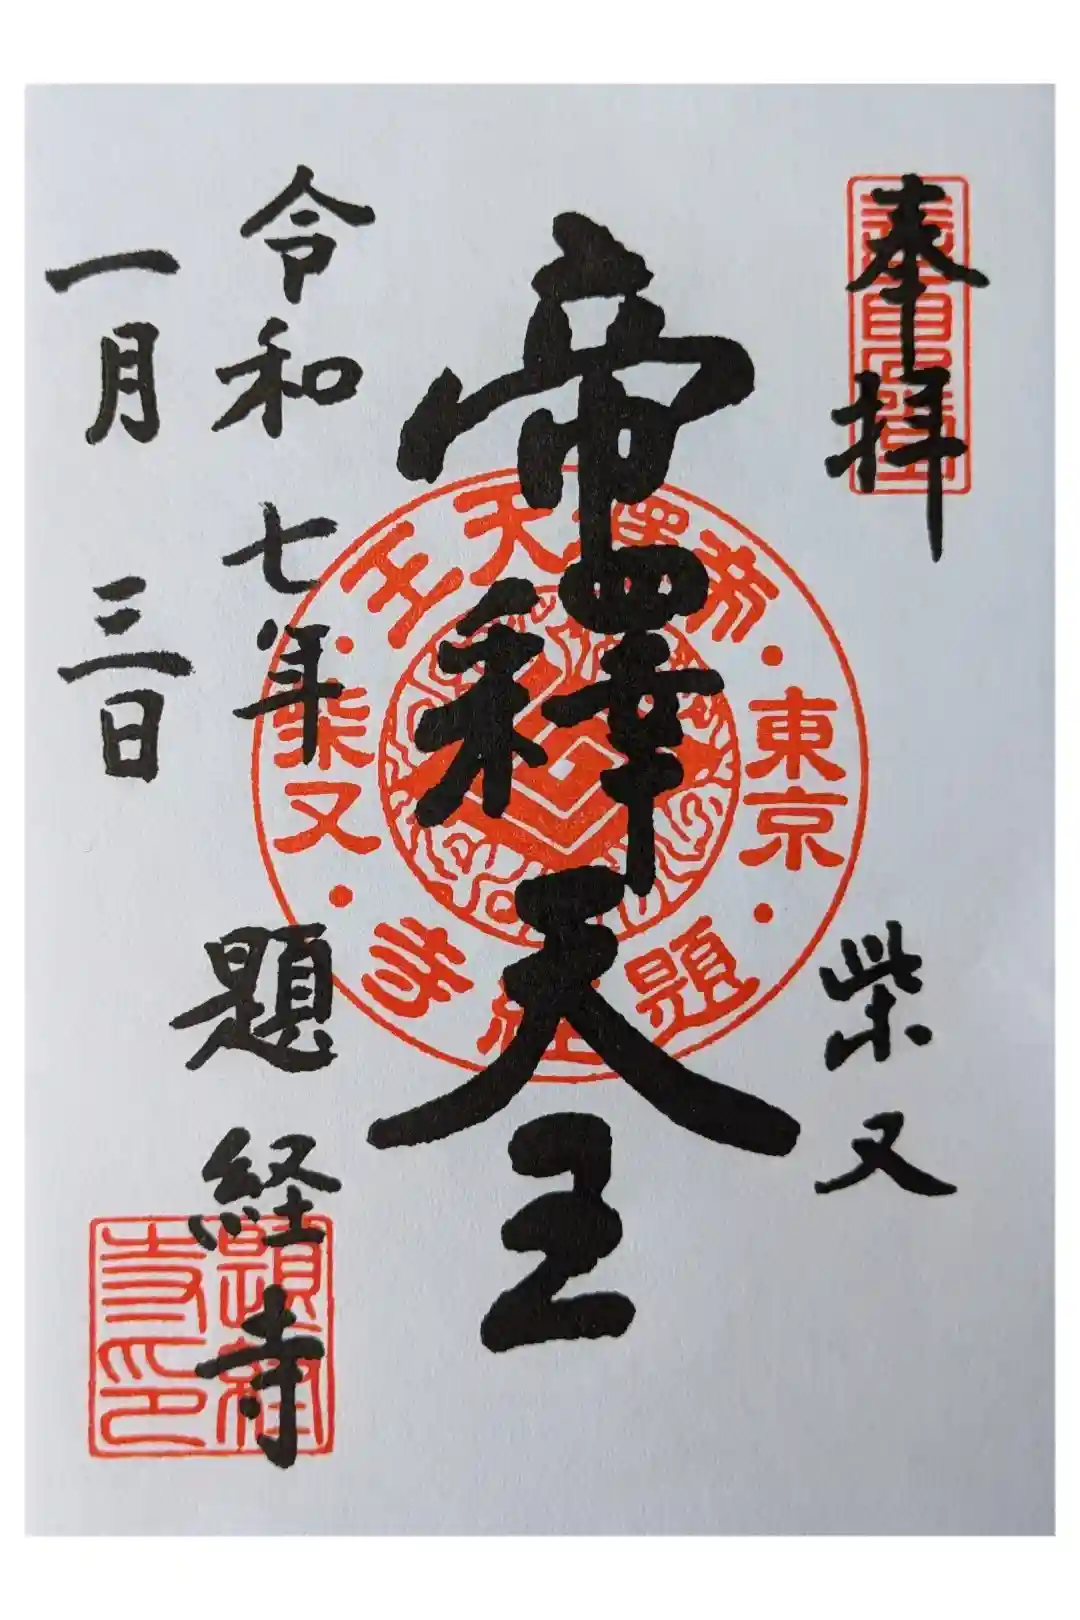 奉拝
柴又
帝釋天王
令和七年
一月三日
題経寺
東京
題経寺
柴又
帝釋天王
題経寺印